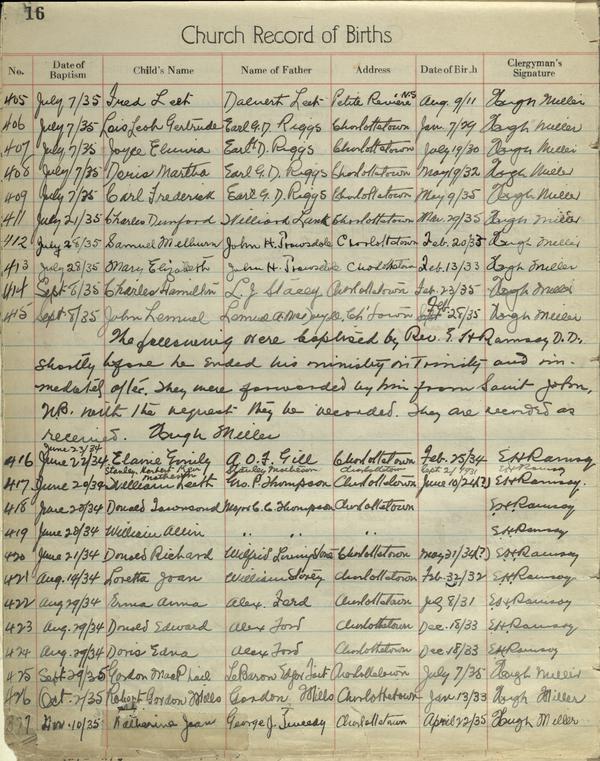 16
Church Record of Births
No. Date of Baptism Child's Name Name of Father Address Date of Birth Clergyman's Signature
405 July 7/35 Fred Leet Leet Petite Riviere N.S. Aug. 9/11 Hugh Miller
406 July 7/35 Lois Leah Gertrude Earl G.D. Riggs Charlottetown Jan. 7/29 Hugh Miller
407 July 7/35 Joyce Earl G. D. Riggs Charlottetown July 19/30 Hugh Miller
408 July 7/35 Doris Martha Earl G. D. Riggs Charlottetown May 19/32 Hugh Miller
409 July 7/35 Carl Frederick Earl G. D. Riggs Charlottetown May 9/35 Hugh Miller
411 July 21/35 Charles Dunford Willard Lank Charlottetown Mar. 29/35 Hugh Miller
412 July 28/35 Samuel Melburn John H. Trowsdale Charlottetown Feb. 20/35 Hugh Miller
413 July 28/35 Mary Elizabeth John H. Trowsdale Charlottetown Feb. 13/33 Hugh Miller
414 Sept 8/35 Charles Hamilton L. J. Stacey Charlottetown Feb. 23/35 Hugh Miller
415 Sept 8/35 John Lemuel Lemuel Ch'town Feb 28/35 Hugh Miller
The following were baptised by Rev. E. H. Ramsay D.D.
shortly before he ended his ministry in Trinity and im-
mediately after. They were forwarded by him from Saint John,
N.B. with the request they be recorded. They are recorded as
received. Hugh Miller
June 23/34
416 June 22/34 Elaine A. O. F. Gill Charlottetown Feb. 25/34 E H Ramsay
Stanley Herbert Keir Matheson Stanley Matheson Charlottetown Sept 2/1931 E H Ramsay
417 June 20/34 William Keith Geo. P. Thompson Charlottetown June 10/24(?) E H Ramsay.
418 June 20/34 Donald Townsend Major C. C. Thompson Charlottetown E H Ramsay
419 June 20/34 William Allin " " " E H Ramsay
420 June 21/34 Donald Richard Wilfrid Livingstone Charlottetown May 31/34(?) E H Ramsay
421 Aug. 19/34 Loretta Joan William Storey Charlottetown Feb. 22/32 E H Ramsay
422 Aug 29/34 Erma Anna Alex. Ford Charlottetown July 8/31 E H Ramsay
423 Aug. 29/34 Donald Edward Alex Ford Charlottetown Dec. 18/33 E H Ramsay
424 Aug. 29/34 Doris Edna Alex Ford Charlottetown Dec 18/33 E H Ramsay
425 Sept 29/35 Gordon MacPhail LeBaron Edgar Charlottetown July 7/35 Hugh Miller
426 Oct. 2/35 Robert Gordon Mills Gordon Mills Charlottetown Jan. 13/33 Hugh Miller
Nov. 10/35 Katharine Jean George J. Tweedy Charlottetown April 22/35 Hugh Miller